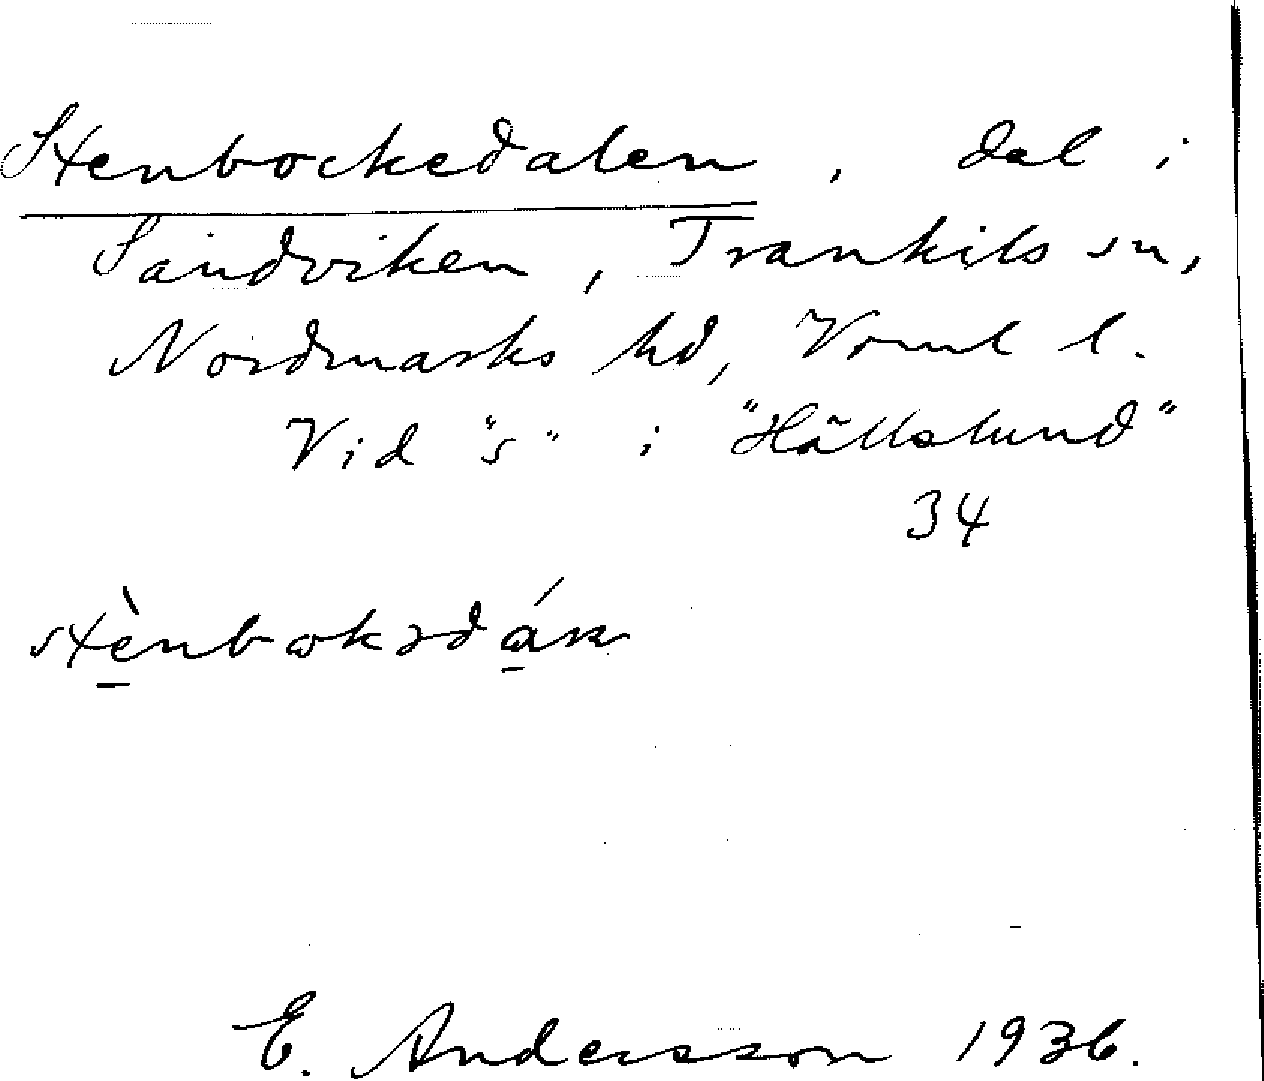 Stenbockedalen, dal i
Sandviken, Trankils sn,
Nordmarks hd, Vrml l.
Vid "s" i "Hällslund"
34
stènbokədán
E. Andersson 1936.